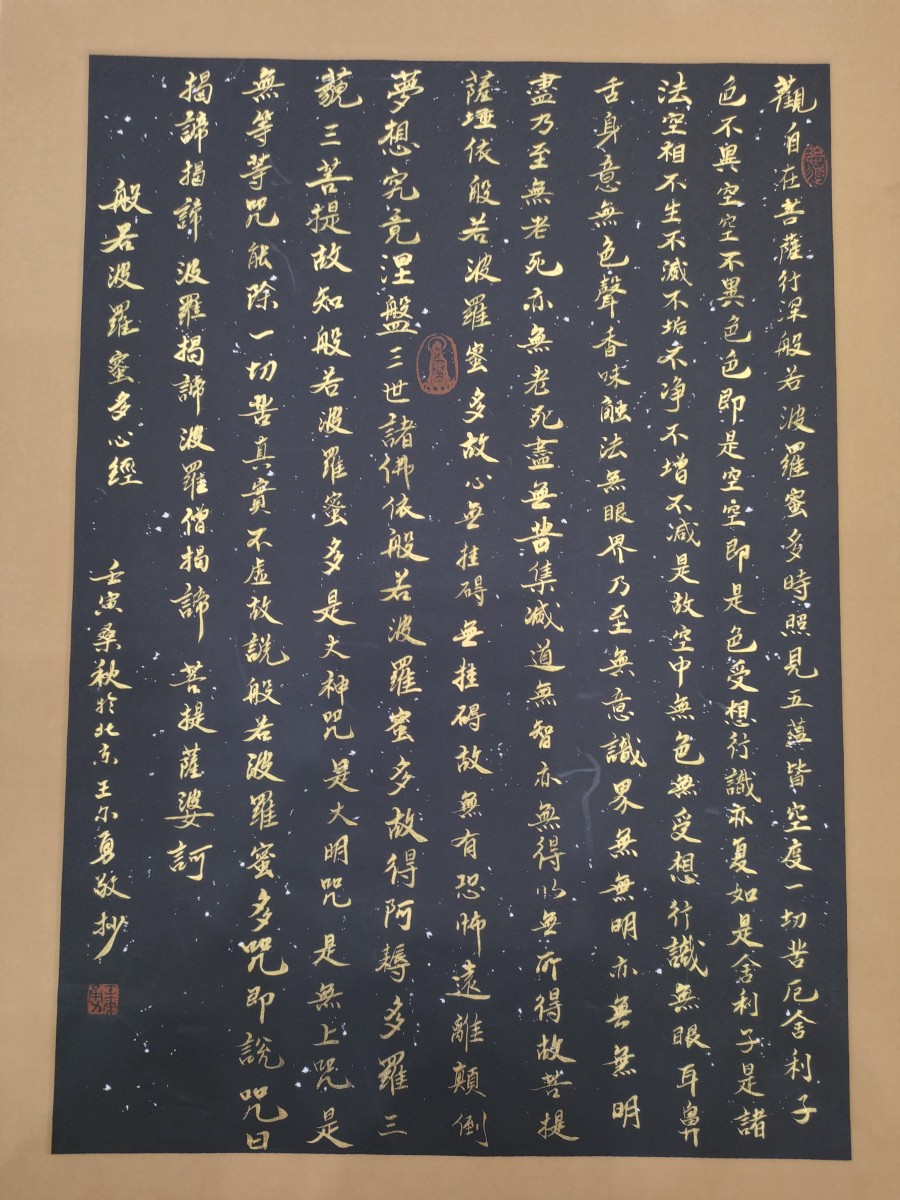 觀自在菩薩行深般若波羅蜜多時照見五蕴皆空度一切苦厄舍利子
色不異空空不異色色即是空空即是色受想行識亦复如是舍利子是諸
法空相不生不滅不垢不净不增不减是故空中無色無受想行識無眼耳鼻
舌身意無色聲香味触法無眼界乃至無意識界無無明亦無無明
盡乃至無老死亦無老死盡無苦集滅道無智亦無得以無所得故菩提
薩埵依般若波羅蜜多故心无挂碍無挂碍故無有恐怖遠離顛倒
夢想究竟涅盤三世諸佛依般若波羅蜜多故得阿耨多羅三
藐三菩提故知般若波羅蜜多是大神咒是大明咒是無上咒是
無等等咒能除一切苦真實不虛故說般若波羅蜜多咒即說咒曰
揭諦揭諦波羅揭諦波羅僧揭諦菩提薩婆訶
般若波羅蜜多心經
壬寅桑秋於北京王尔勇敬抄